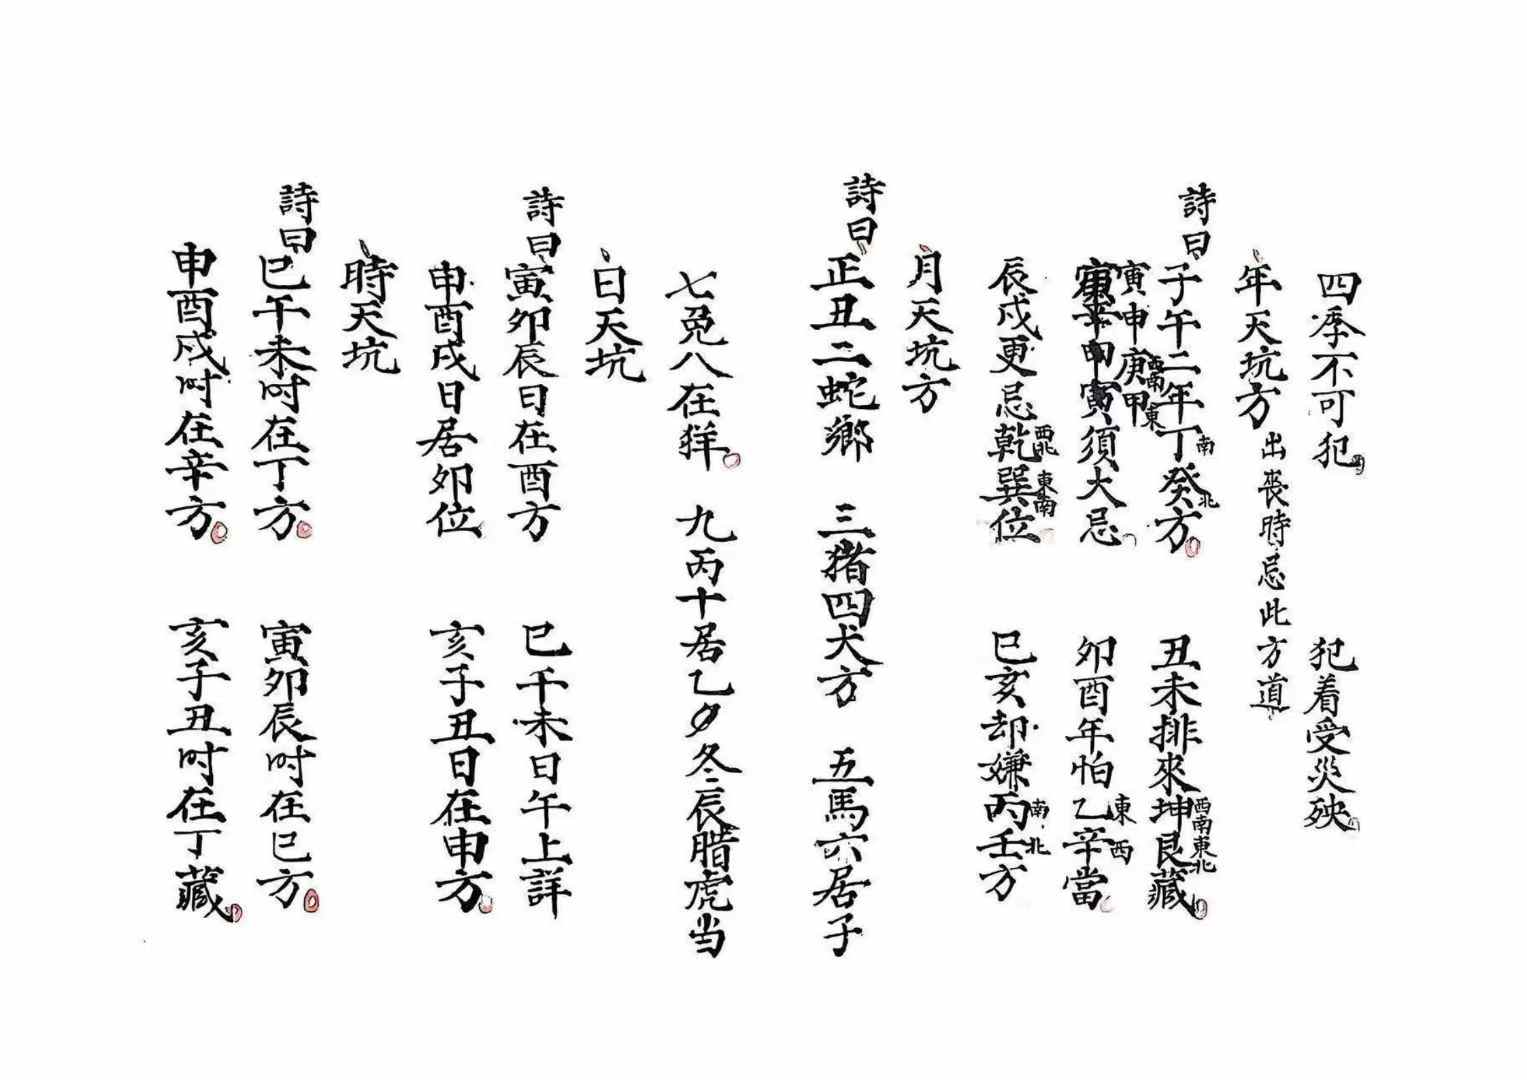 四季不可犯　犯着受災殃
年天坑方　出丧時忌此方道
詩曰　子午二年丁南癸北方　丑未排來坤西南艮東北藏
寅申庚西南甲東
寅須大忌　卯酉年怕乙東辛西當
辰戌更忌乾西北巽東南位　巳亥却嫌丙南壬北方
月天坑方
詩曰　正丑二蛇鄉　三猪四犬方　五馬六居子
七兎八在羊　九丙十居乙　冬辰腊虎当
日天坑
詩曰　寅卯辰日在酉方　巳午未日午上詳
申酉戌日居卯位　亥子丑日在申方
時天坑
詩曰　巳午未时在丁方　寅卯辰时在巳方
申酉戌时在辛方　亥子丑时在丁藏